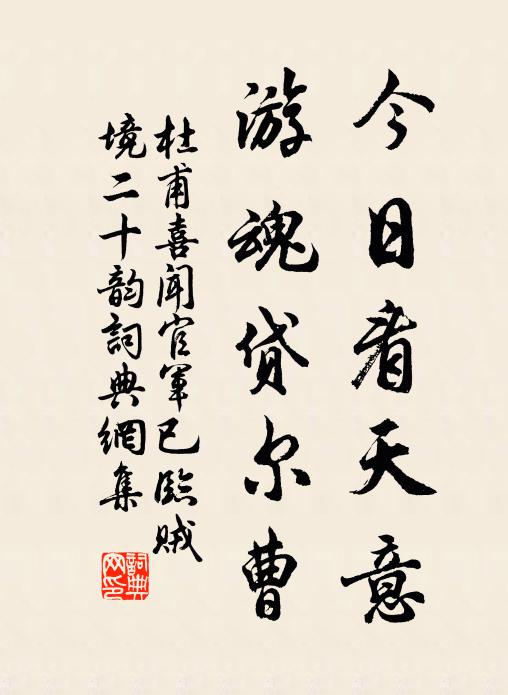 今日看天意
游魂贷尔曹
杜甫喜闻官军已临贼
境二十韵词典網集
詞典网印